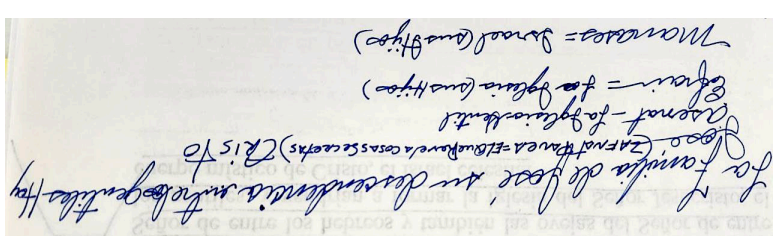 La Familia de José su descendencia entre los gentiles Hoy
Jose (ZAFNAT PANEA = EL QUE Revela cosas secretas) CRISTO
Asenat - La Iglesia Gentil
Efrain = La Iglesia (sus Hijos)
Manases = Israel (sus Hijos)